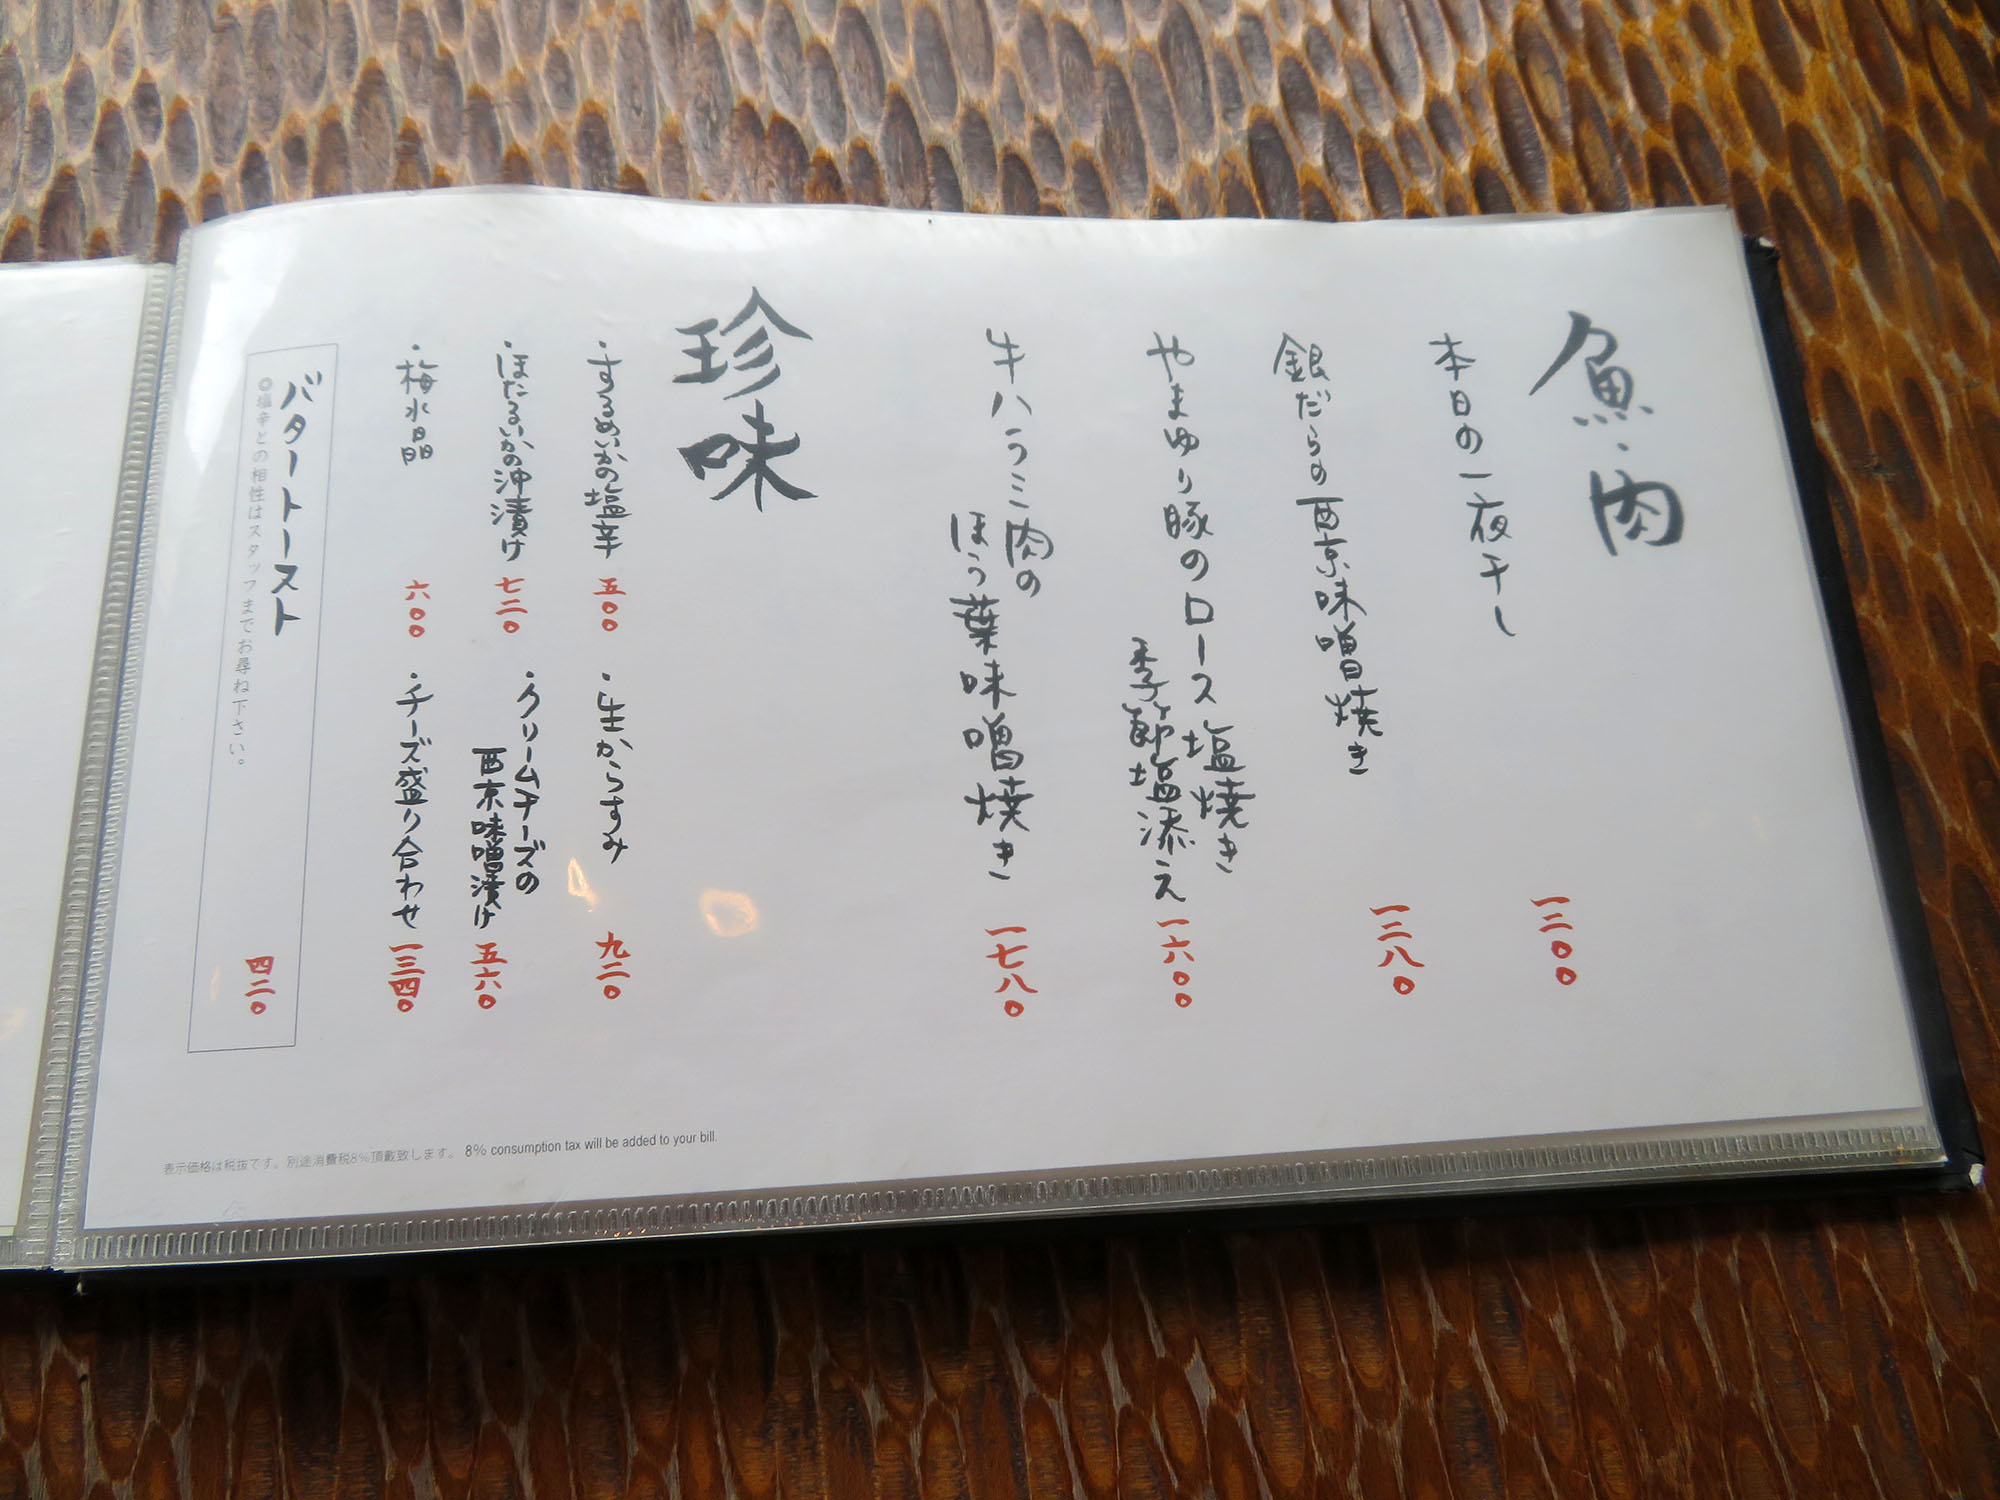 魚・肉
本日の一夜干し 一二〇〇
銀だらの西京味噌焼き 一三八〇
やまゆり豚のロース塩焼き
季節塩添え 一六〇〇
牛ハラミ肉の
ほう葉味噌焼き 一七八〇
珍味
・するめいかの塩辛 五〇〇
・生からすみ 九二〇
・ほたるいかの沖漬け 七二〇
・クリームチーズの
西京味噌漬け 五六〇
・梅水晶 六〇〇
・チーズ盛り合わせ 一三四〇
バタートースト 四二〇
◎塩辛との相性はスタッフまでお尋ね下さい。
表示価格は税抜です。別途消費税8%頂戴致します。 8% consumption tax will be added to your bill.